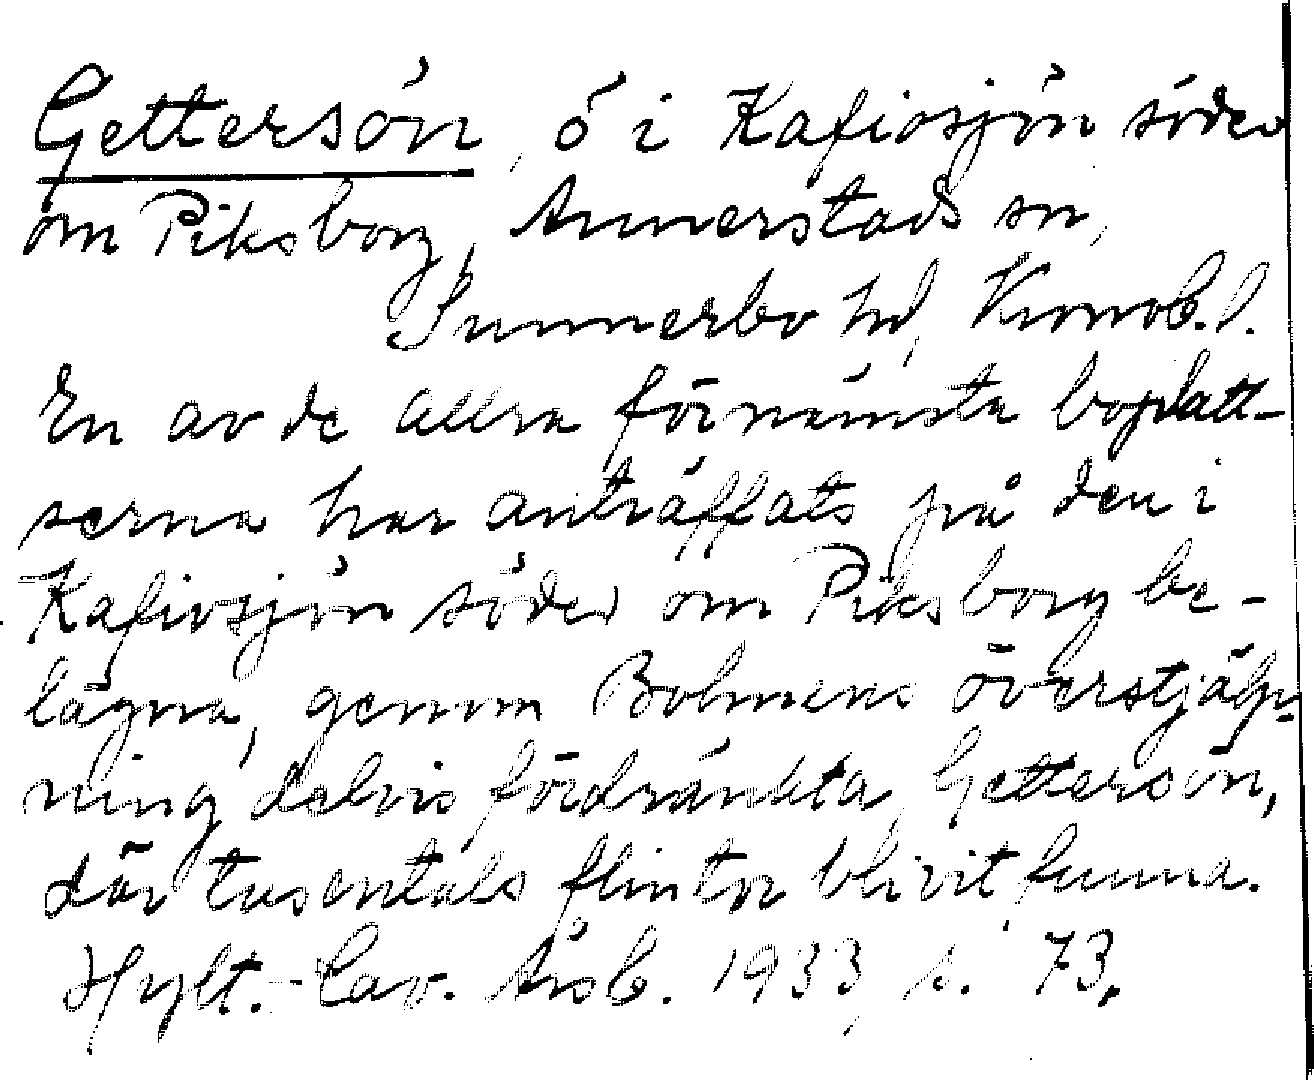 Gettersön, ö i Kafiosjön söder
om Piksborg, Annerstads sn,
Sunnerbo hd, Kronob. l.
En av de allra förnämsta boplatt-
serna har anträffats på den i
Kafiosjön söder om Piksborg be-
lägna, genom Bolmens överstjälp-
ning delvis fördränkta Gettersön,
där tusentals flintor blivit funna.
Hylt.-Cav. Årsb. 1933, s. 73.